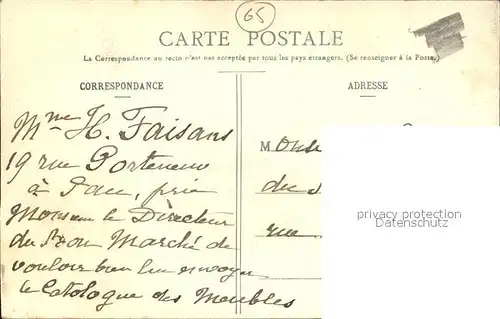 65
CARTE POSTALE
La Correspondance au recto n'est pas acceptée par tous les pays étrangers. (Se renseigner à la Poste)
CORRESPONDANCE
ADRESSE
Mme H. Faisans
19 rue Porteneuve
à Pau, prie
Monsieur le Directeur
du Bon Marché de
vouloir bien lui envoyer
le Catologue des Meubles
M.
du
rue
privacy protection
Datenschutz